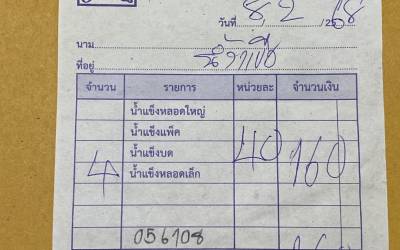 วันที่ 8 2 /2568
นาม
ที่อยู่
จำนวน รายการ หน่วยละ จำนวนเงิน
น้ำแข็งหลอดใหญ่
น้ำแข็งแพ็ค
น้ำแข็งบด 40 160
4 น้ำแข็งหลอดเล็ก
056108